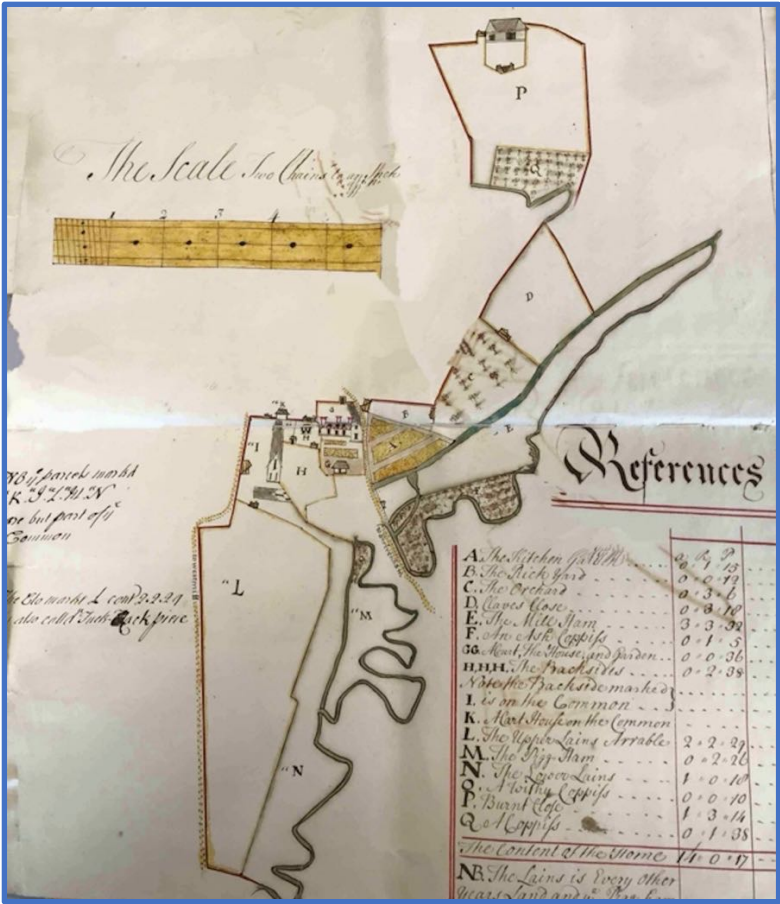 The Scale Two Chains to an Inch
1 2 3 4
P
Q
D
E
B
A
I
H
L
M
N
NB ye parcels markd
K. I. L. M. N
are but part of ye
Common
The Clo markt L cont 2-2-29
also calld Tuck
References
A. The Kitchen Garden
B. The Rick Yard 0 - 0 - 19
C. The Orchard 0 - 3 - 6
D. Claves Close 0 - 3 - 18
E. The Mill Ham 3 - 3 - 32
F. An Ash Coppiss 0 - 1 - 5
GG. The House, and Garden 0 - 0 - 36
H,H,H. The Backsides 0 - 2 - 38
Note the Backside marked
I. is on the Common
K. House on the Common
L. The Upper Lains Arrable 2 - 2 - 29
M. The Pigg Ham 0 - 2 - 26
N. The Lower Lains 1 - 0 - 18
O. A Withy Coppiss 0 - 0 - 10
P. Burnt Close 1 - 3 - 14
Q. A Coppiss 0 - 1 - 38
The Content of the Home 14 - 0 - 17
NB. The Lains is Every other
Years Land and